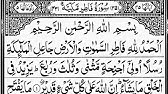 سُوْرَةُ فَاطِرٍ مَكِّيَّةٌ
بِسْمِ اللّٰهِ الرَّحْمٰنِ الرَّحِيْمِ
اَلْحَمْدُ لِلّٰهِ فَاطِرِ السَّمٰوٰتِ وَالْاَرْضِ جَاعِلِ الْمَلٰٓئِكَةِ
رُسُلًا اُولِيْٓ اَجْنِحَةٍ مَّثْنٰى وَثُلٰثَ وَرُبٰعَ ؕ يَزِيْدُ فِى